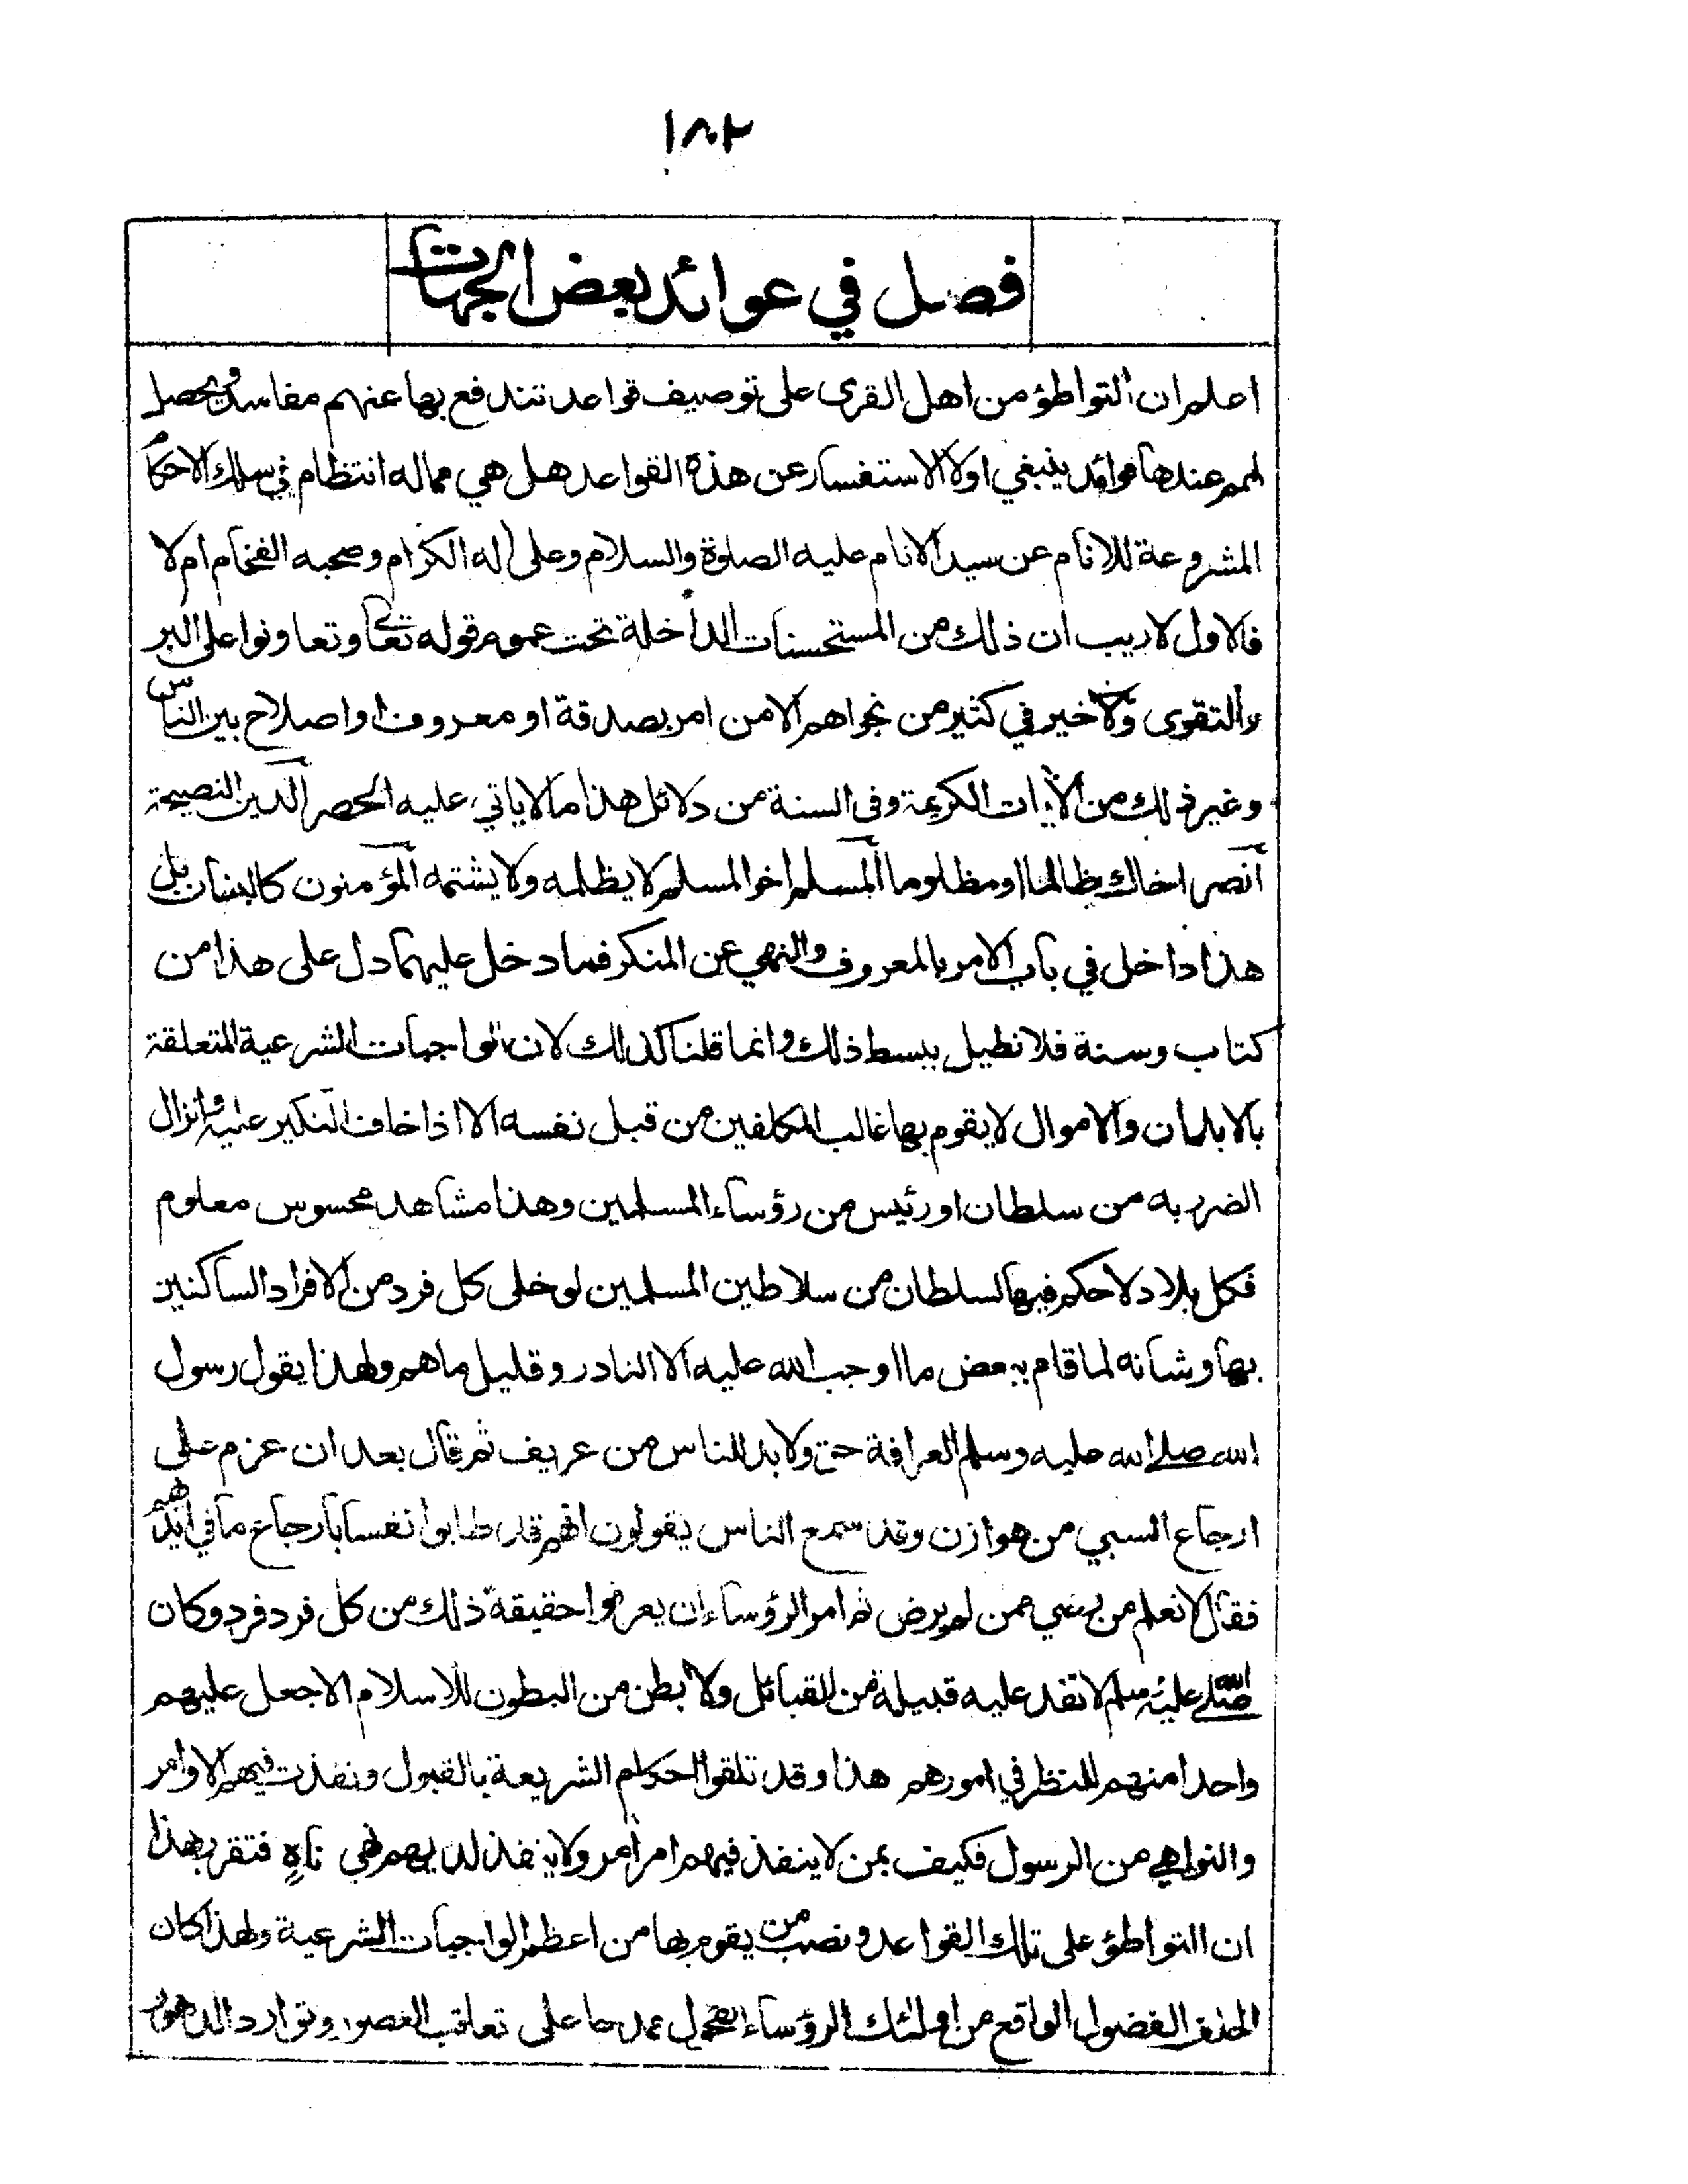 ١٨٢
فصل في عوائد بعض الجهات
اعلم ان التواطؤ من اهل القرى على توصيف قواعد تندفع بها عنهم مفاسد ويحصل
لهم عندها فوائد ينبغي اولا الاستفسار عن هذه القواعد هل هي مما له انتظام في سلك الاحكام
المشروعة للانام عن سيد الانام عليه الصلوة والسلام وعلى اله الكرام وصحبه الفخام ام لا
فالاول لاريب ان ذلك من المستحسنات الداخلة تحت عموم قوله تعا وتعاونوا على البر
والتقوى ولا خير في كثير من نجواهم الا من امر بصدقة او معروف او اصلاح بين الناس
وغير ذلك من الأيات الكريمة وفي السنة من دلائل هذا ما لا ياتي عليه الحصر الدين النصيحة
انصر اخاك ظالما او مظلوما المسلم اخو المسلم لا يظلمه ولا يشتمه المؤمنون كالبنيان بل
هذا داخل في باب الامر بالمعروف والنهي عن المنكر فما دخل عليهما دل على هذا من
كتاب وسنة فلا نطيل ببسط ذلك وانما قلنا كذلك لان الواجبات الشرعية المتعلقة
بالابدان والاموال لا يقوم بها غالب المكلفين من قبل نفسه الا اذا خاف النكير عليه وانزال
الضر به من سلطان او رئيس من رؤساء المسلمين وهذا مشاهد محسوس معلوم
فكل بلاد لا حكم فيها لسلطان من سلاطين المسلمين لو خلى كل فرد من الافراد الساكنين
بها وشانه لما قام ببعض ما اوجب الله عليه الا النادر وقليل ما هم ولهذا يقول رسول
الله صلى الله عليه وسلم العرافة حق ولا بد للناس من عريف ثم قال بعد ان عزم على
ارجاع السبي من هوازن وقد سمع الناس يقولون انهم قد طابوا نفسا بارجاع ما في ايديهم
فقال لا نعلم من رضي ممن لم يرض ثم امر الرؤساء ان يعرفوا حقيقة ذلك من كل فرد فرد وكان
صلى الله عليه وسلم لا تفد عليه قبيلة من القبائل ولا بطن من البطون للاسلام الا جعل عليهم
واحدا منهم للنظر في امورهم هذا وقد تلقوا احكام الشريعة بالقبول ونفذت فيهم الاوامر
والنواهي من الرسول فكيف بمن لا ينفذ فيهم امر آمر ولا ينفذ لديهم نهي ناهٍ فتقرر بهذا
ان التواطؤ على تلك القواعد ونصب من يقوم بها من اعظم الواجبات الشرعية ولهذا كان
الفضول الواقع من اولئك الرؤساء على تعاقب العصور وتوارد الدهور